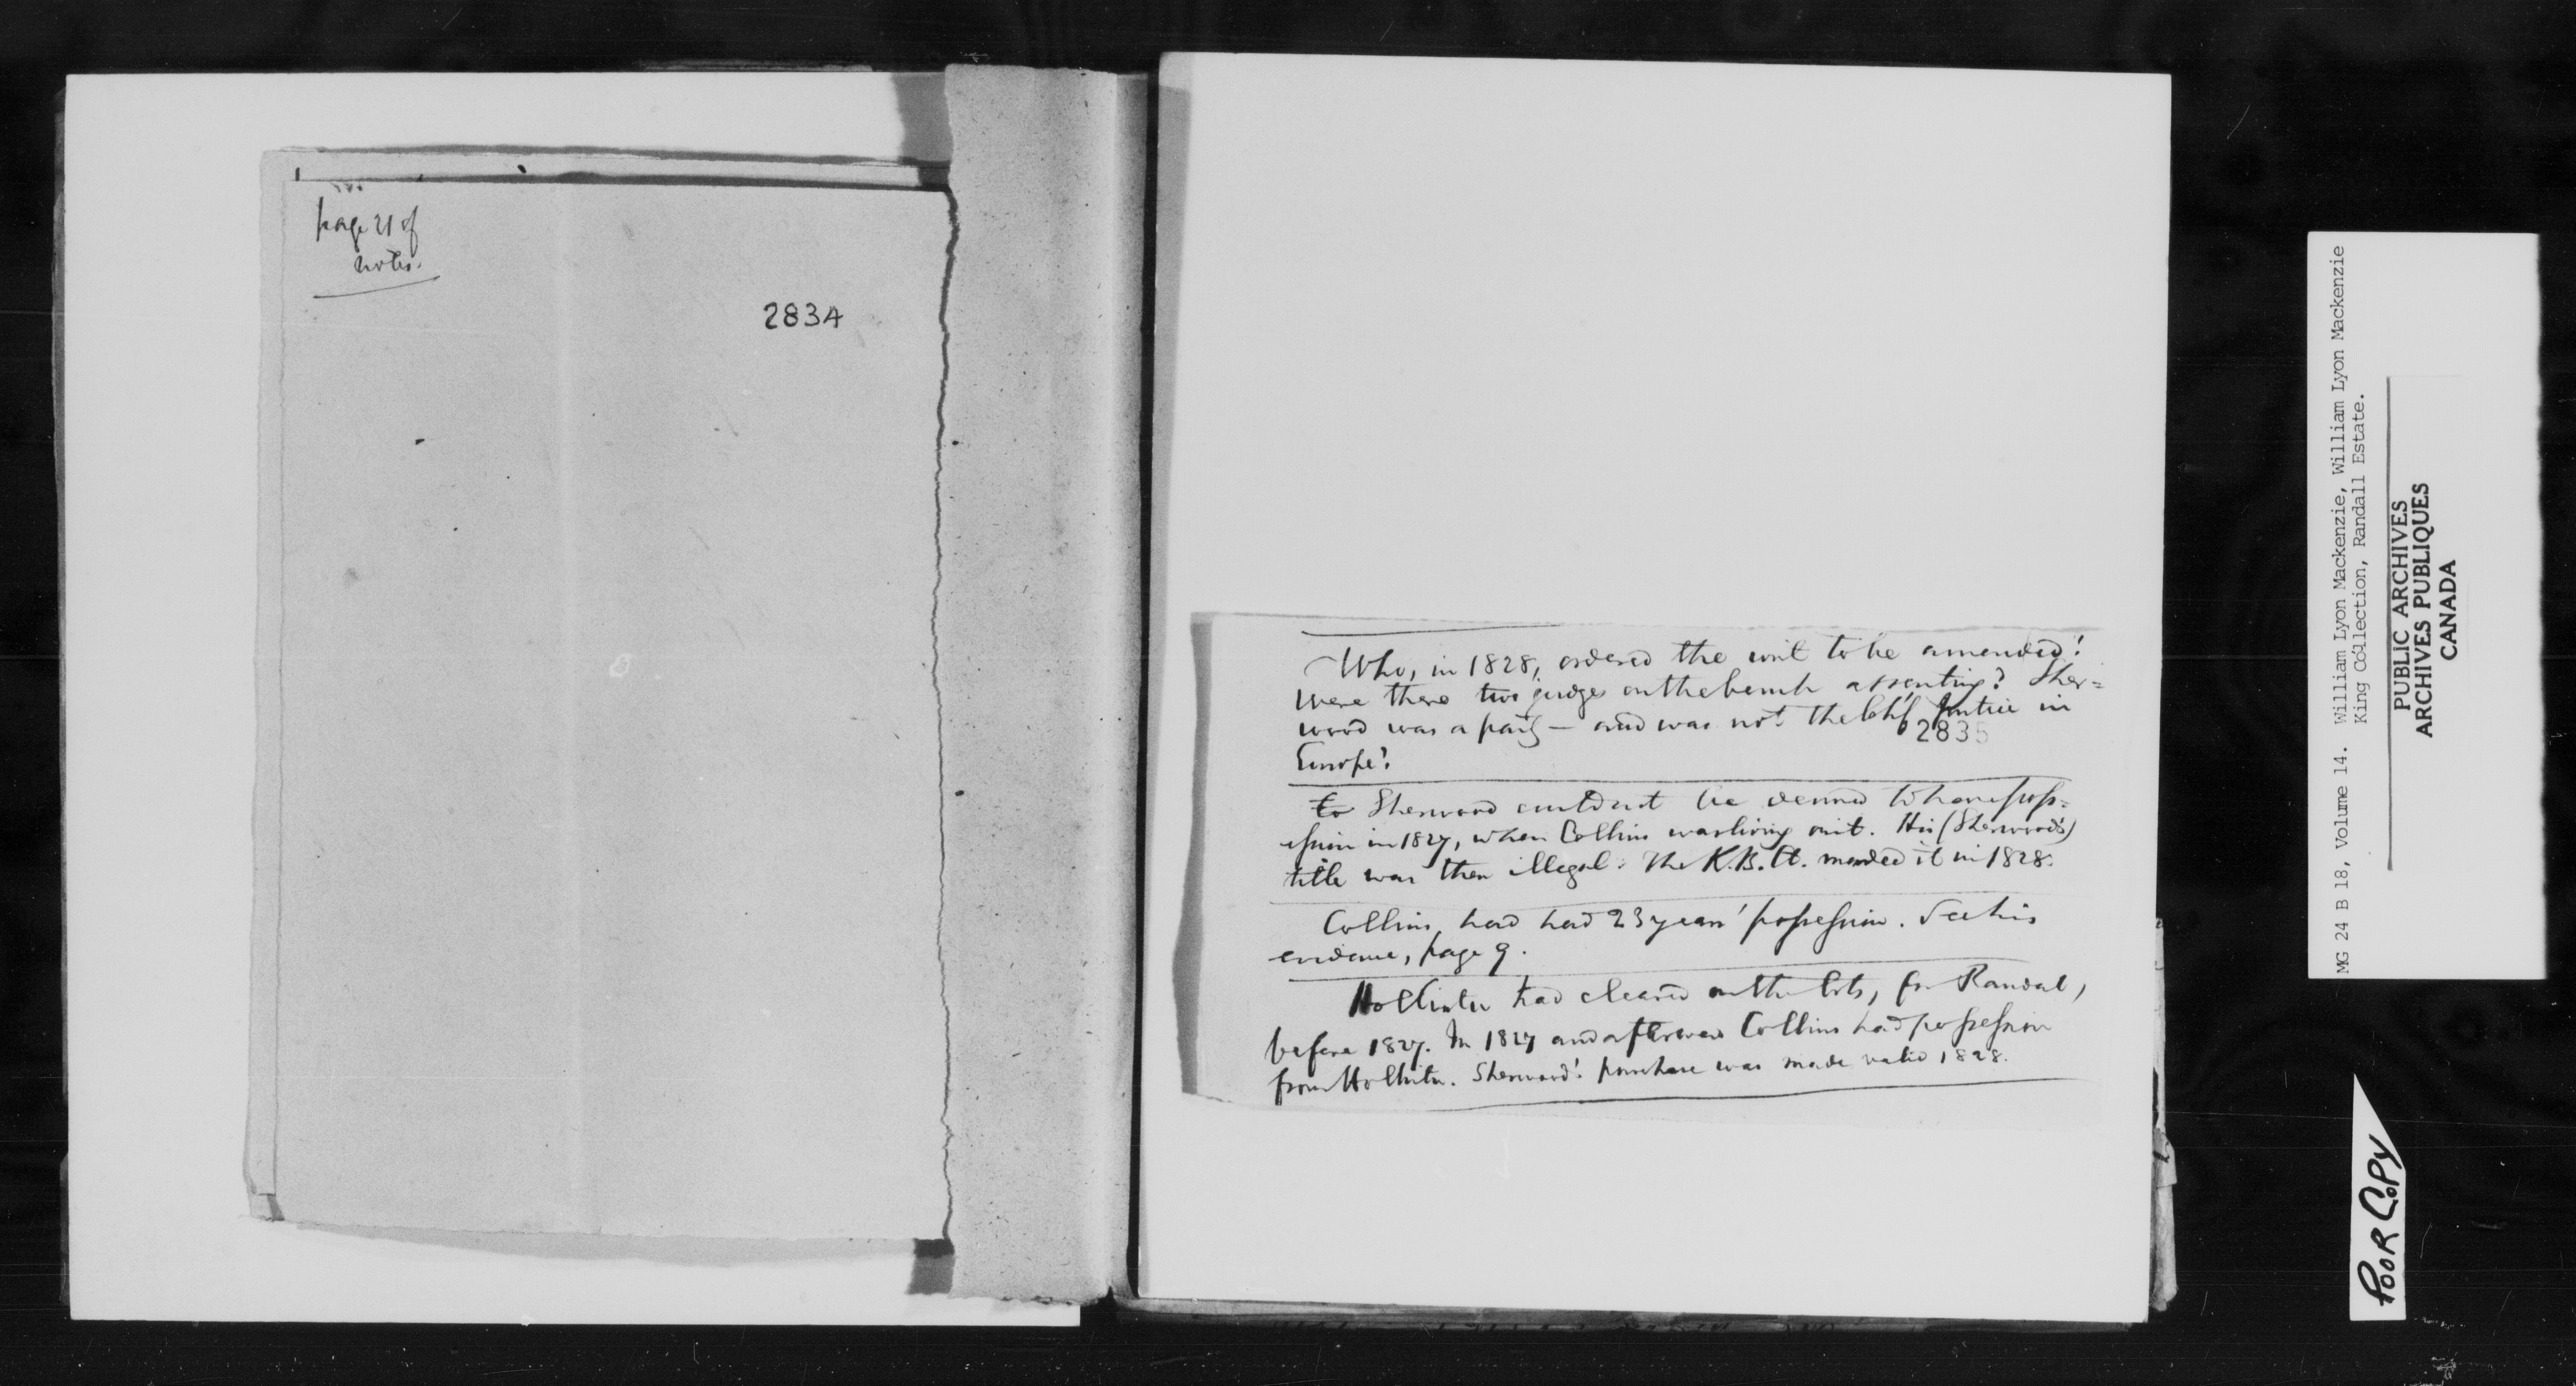 page 21 of
notes.
2834
Who, in 1828, ordered the writ to be amended?
Were there two judges on the bench assenting? Sher=
wood was a party — and was not the Chf Justice in
2835
Europe?
Sherwood could not be deemed to have poss=
ession in 1827, when Collins was living on it. His (Sherwood's)
title was then illegal. The K.B. Ct. mended it in 1828.
Collins had had 23 years' possession. See his
evidence, page 9.
Hollister had cleared on the lots, for Randal,
before 1827. In 1827 and afterward Collins had possession
from Hollister. Sherwood's purchase was made valid 1828.
MG 24 B 18, Volume 14. William Lyon Mackenzie, William Lyon Mackenzie
King Collection, Randall Estate.
PUBLIC ARCHIVES
ARCHIVES PUBLIQUES
CANADA
POOR COPY